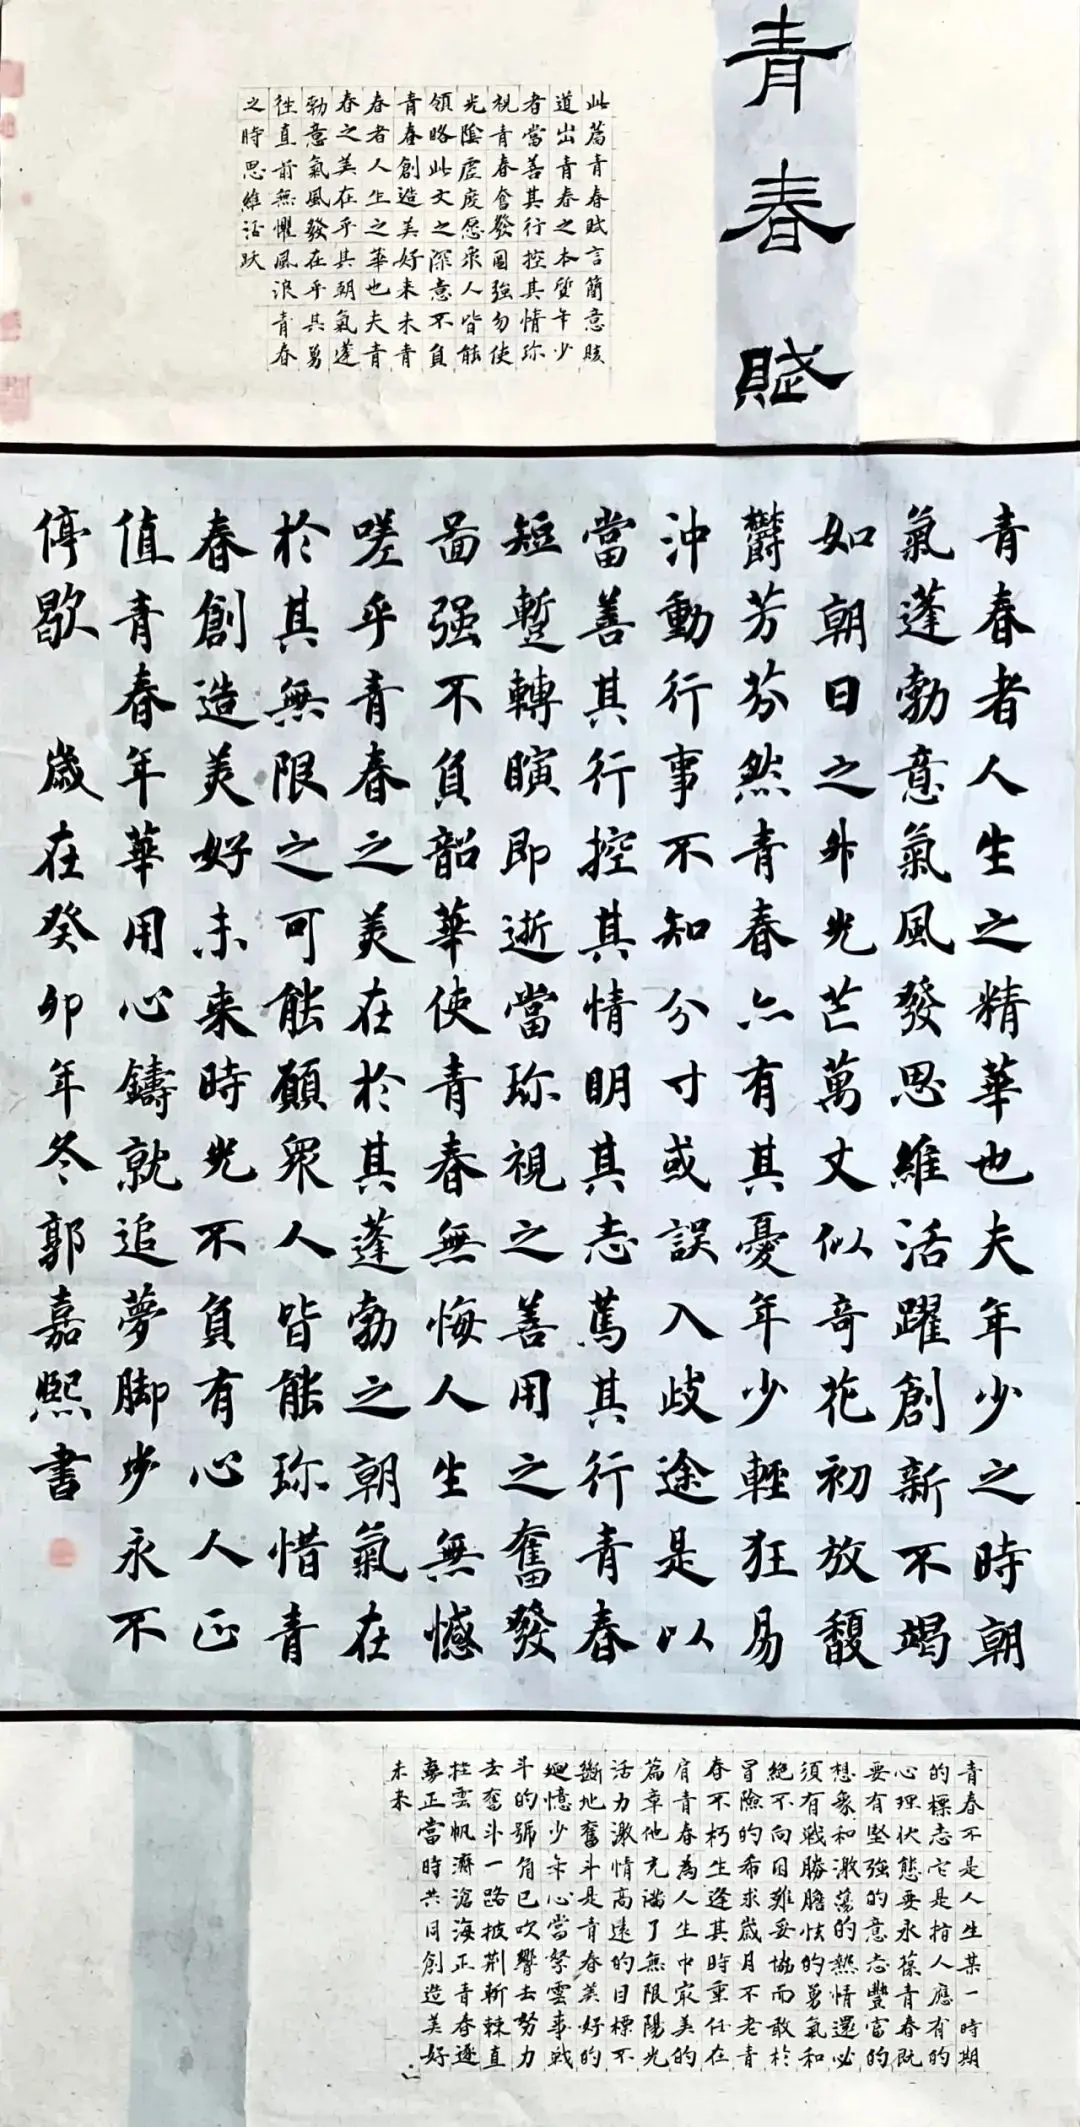 青春賦
此篇青春賦言簡意賅
道出青春之本質年少
者當善其行控其情珎
視青春奮發圖強勿使
光陰虛度愿衆人皆能
領略此文之深意不負
青春創造美好未来青
春者人生之華也夫青
春之美在乎其朝氣蓬
勃意氣風發在乎其勇
往直前無懼風浪青春
之時思維活跃
青春者人生之精華也夫年少之時朝
氣蓬勃意氣風發思維活躍創新不竭
如朝日之升光芒萬丈似奇花初放馥
欝芳芬然青春亦有其憂年少輕狂易
沖動行事不知分寸或誤入歧途是以
當善其行控其情明其志篤其行青春
短暫轉瞚即逝當珎視之善用之奮發
啚强不負韶華使青春無悔人生無憾
嗟乎青春之美在於其蓬勃之朝氣在
於其無限之可能願衆人皆能珎惜青
春創造美好未来時光不負有心人正
值青春年華用心鑄就追夢脚步永不
停歇 歲在癸卯年冬郭嘉熙書
青春不是人生某一時期
的標志它是指人應有的
心理状態要永葆青春既
要有堅強的意志豐富的
想象和激蕩的熱情還必
須有戰勝膽怯的勇氣和
絶不向困難妥協而敢於
冒險的希求歲月不老青
春不朽生逢其時重任在
肩青春為人生中最美的
篇章他充滿了無限陽光
活力激情高遠的目標不
斷地奮斗是青春美好的
廻憶少年心當拏雲事戦
斗的號角已吹響去努力
去奮斗一路披荆斬棘直
挂雲帆濟滄海正青春逐
夢正當時共同創造美好
未来